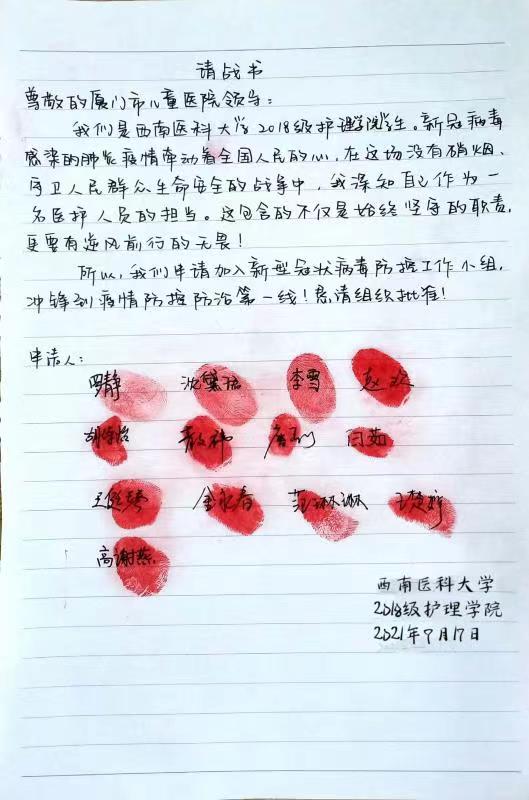 请战书
尊敬的厦门市儿童医院领导：
我们是西南医科大学2018级护理学院学生。新冠病毒
感染的肺炎疫情牵动着全国人民的心，在这场没有硝烟、
守卫人民群众生命安全的战争中，我深知自己作为一
名医护人员的担当。这包含的不仅是始终坚守的职责，
更要有逆风前行的无畏！
所以，我们申请加入新型冠状病毒防控工作小组，
冲锋到疫情防控防治第一线！恳请组织批准！
申请人：
罗静 沈黛璐 李雪 赵
闫茹
金永春 范琳琳 王楚婷
高谢燕
西南医科大学
2018级护理学院
2021年9月17日